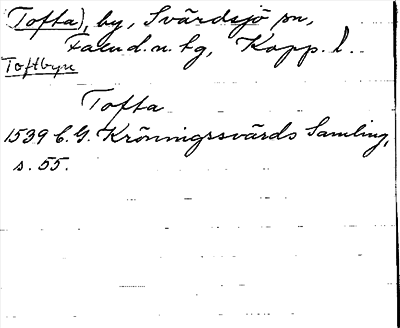 (Tofta), by, Svärdsjö sn,
Falu d. n. tg, Kopp. l.
Toftbyn
Tofta
1539 C.G. Kröningssvärds Samling,
s. 55.